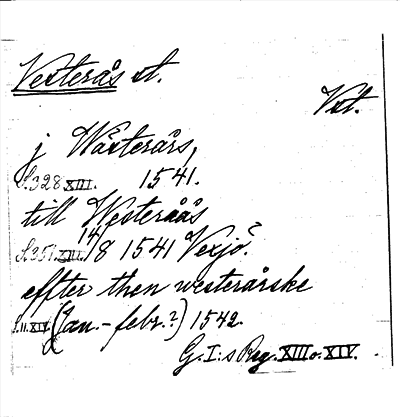 Vesterås st.
Vst.
j Wästerårs,
S.328 XIII. 1541.
till Westeråås
S.351.XIII. 14/8 1541 Vexjö?
effter then westerårske
S.11.XIV. (Jan.-febr.?) 1542.
G.I:s Reg. XIII o. XIV.